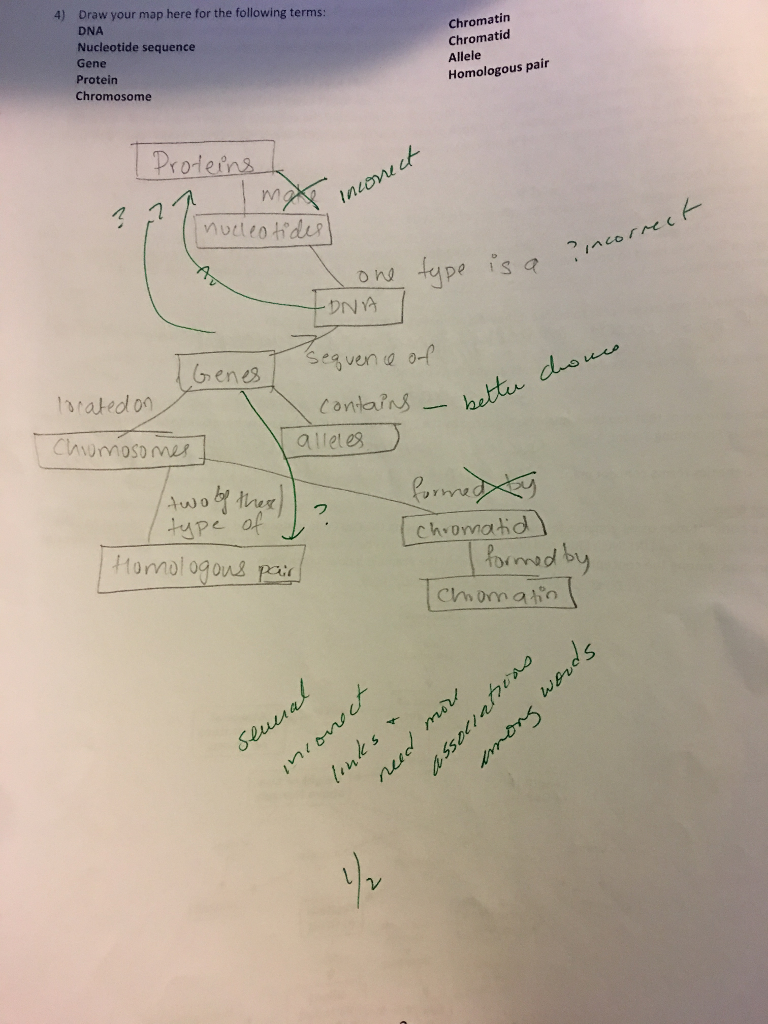 4) Draw your map here for the following terms:
DNA
Nucleotide sequence
Gene
Protein
Chromosome
Chromatin
Chromatid
Allele
Homologous pair
Proteins
make
incorrect
? ?
nucleotides
one type is a
? incorrect
?
DNA
sequence of
Genes
located on
contains — better choice
Chromosomes
alleles
two of these
type of
?
formed by
chromatid
Homologous pair
formed by
Chromatin
several
incorrect
links +
need more
associations
among words
1/2